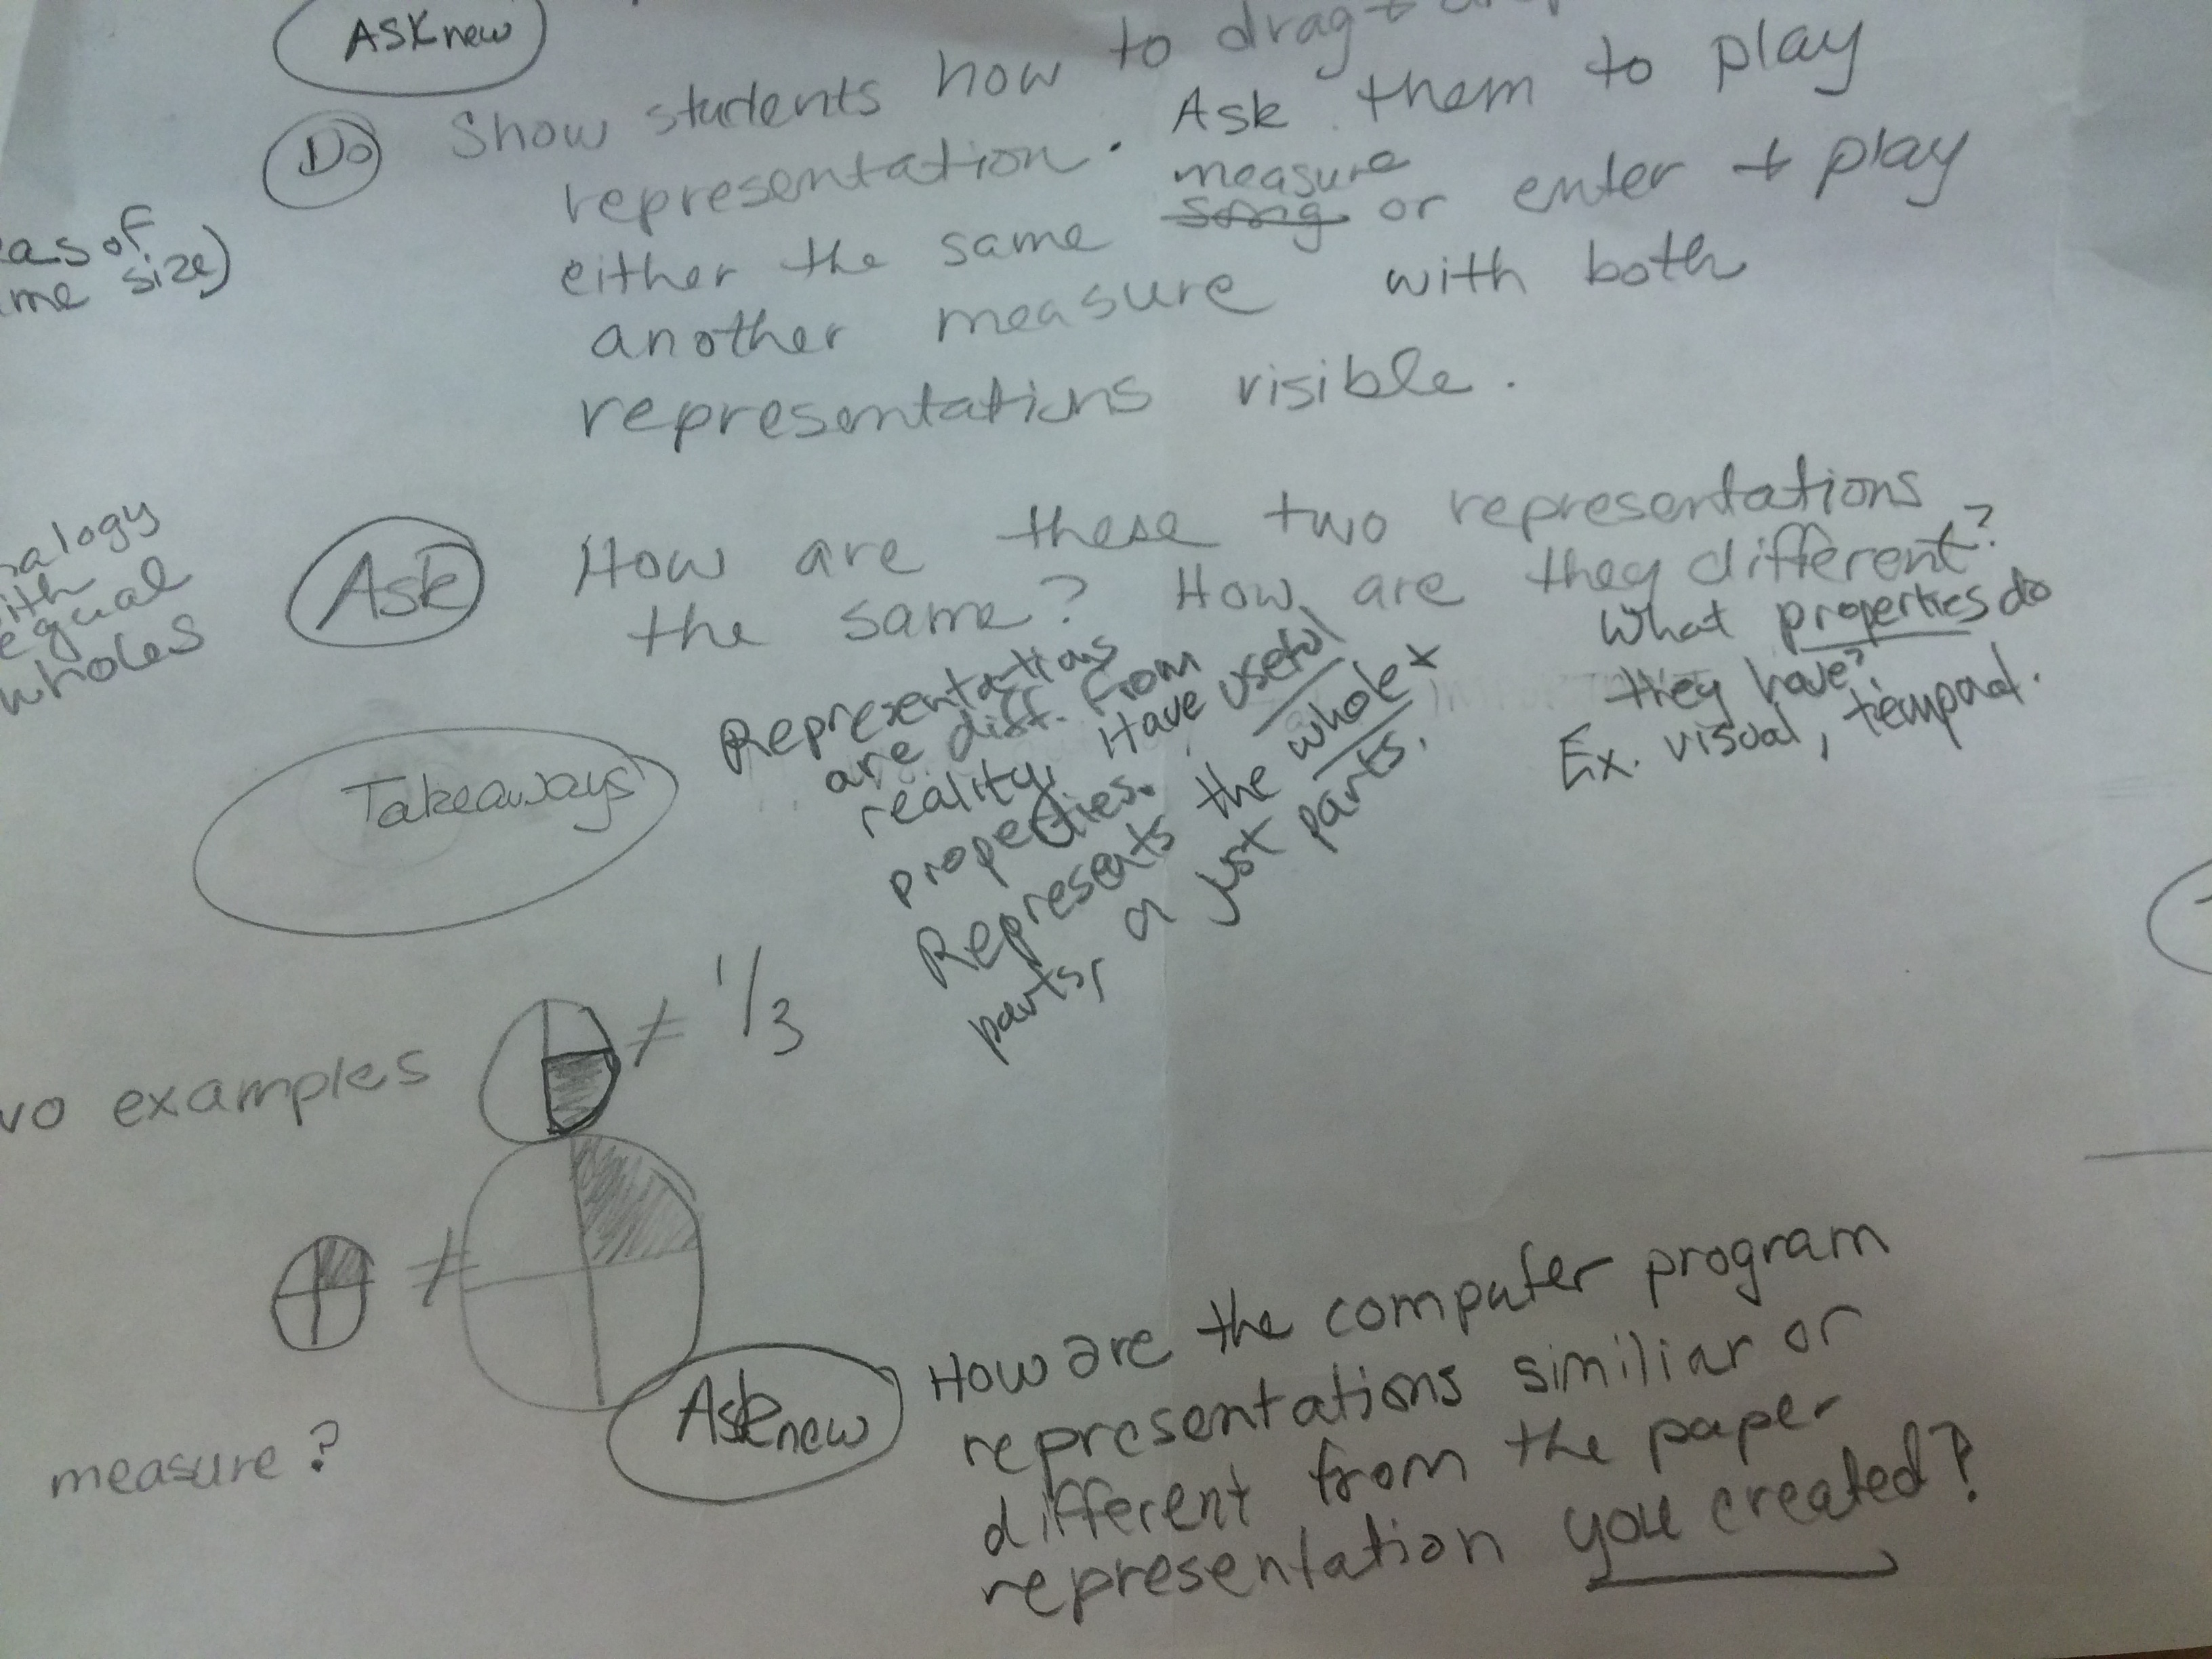 ASK new
Do Show students how to drag +
representation. Ask them to play
measure
either the same song or enter + play
another measure with both
representations visible.
as of
me size)
Ask How are these two representations
the same? How are they different?
What properties do
they have?
Ex. visual, temporal.
nalogy
ith
equal
wholes
Takeaways
Representations
are diff. from
reality. Have useful
properties.
Represents the whole +
parts, or just parts.
wo examples ≠ 1/3
≠
measure?
Ask new How are the computer program
representations similiar or
different from the paper
representation you created?